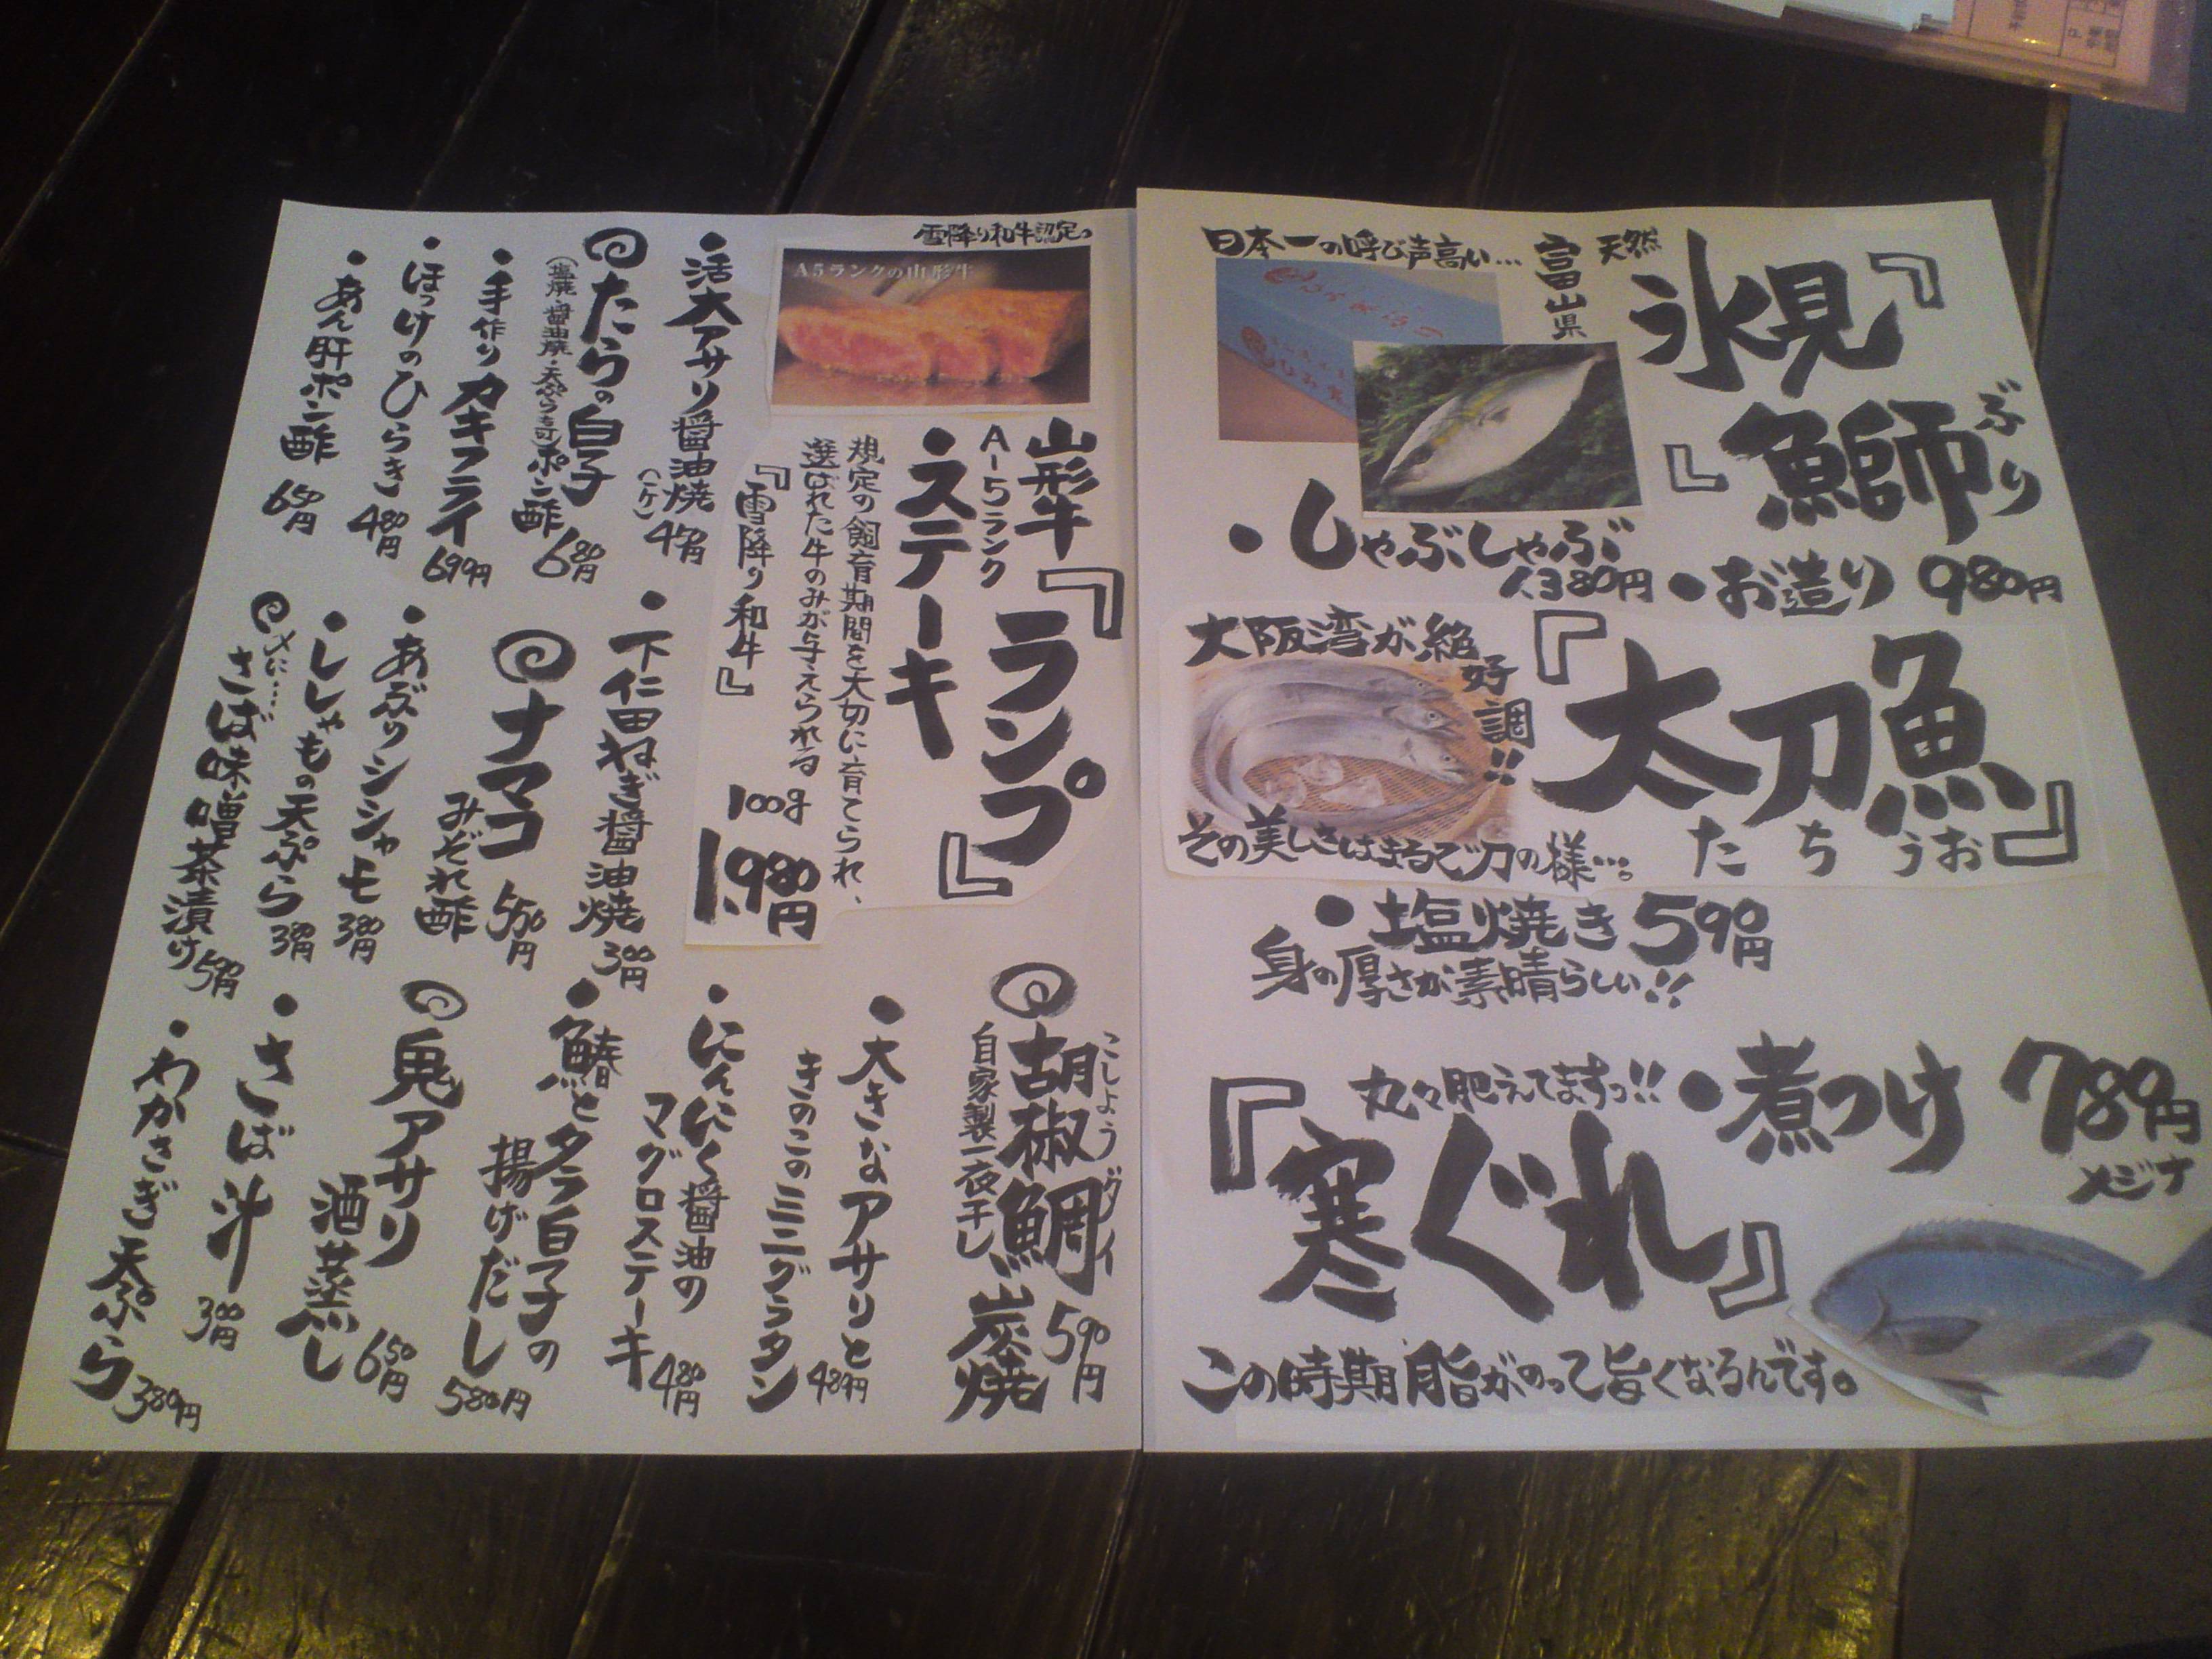 日本一の呼び声高い…
富山県
天然
『氷見
鰤』
ぶり
・しゃぶしゃぶ
1.380円
・お造り 980円
大阪湾が絶
好調!!
『太刀魚』
たちうお
その美しさはまるで刀の様…。
・塩焼き 590円
身の厚さが素晴らしい!!
丸々肥えてますっ!!
・煮つけ 780円
メジナ
『寒ぐれ』
この時期脂がのって旨くなるんです。
雪降り和牛認定っ
A5ランクの山形牛
山形牛『ランプ』
A-5ランク
・ステーキ
規定の飼育期間を大切に育てられ、
選ばれた牛のみが与えられる
『雪降り和牛』
100g
1.980円
・活大アサリ醤油焼
(1ケ)
たらの白子
ポン酢 680円
(塩焼・醤油焼・天ぷらも可)
・手作りカキフライ 690円
・ほっけのひらき 480円
・あん肝ポン酢 650円
・下仁田ねぎ醤油焼 300円
ナマコ
みぞれ酢 550円
・あぶりシシャモ 380円
・ししゃもの天ぷら 380円
〆に……
さば味噌茶漬け
胡椒鯛
こしょうダイ
自家製一夜干し
炭焼 590円
・大きなアサリと
きのこのミニグラタン 480円
・にんにく醤油の
マグロステーキ 480円
・鱈とタラ白子の
揚げだし 580円
鬼アサリ
酒蒸し 650円
・さば汁 300円
・わかさぎ天ぷら 380円